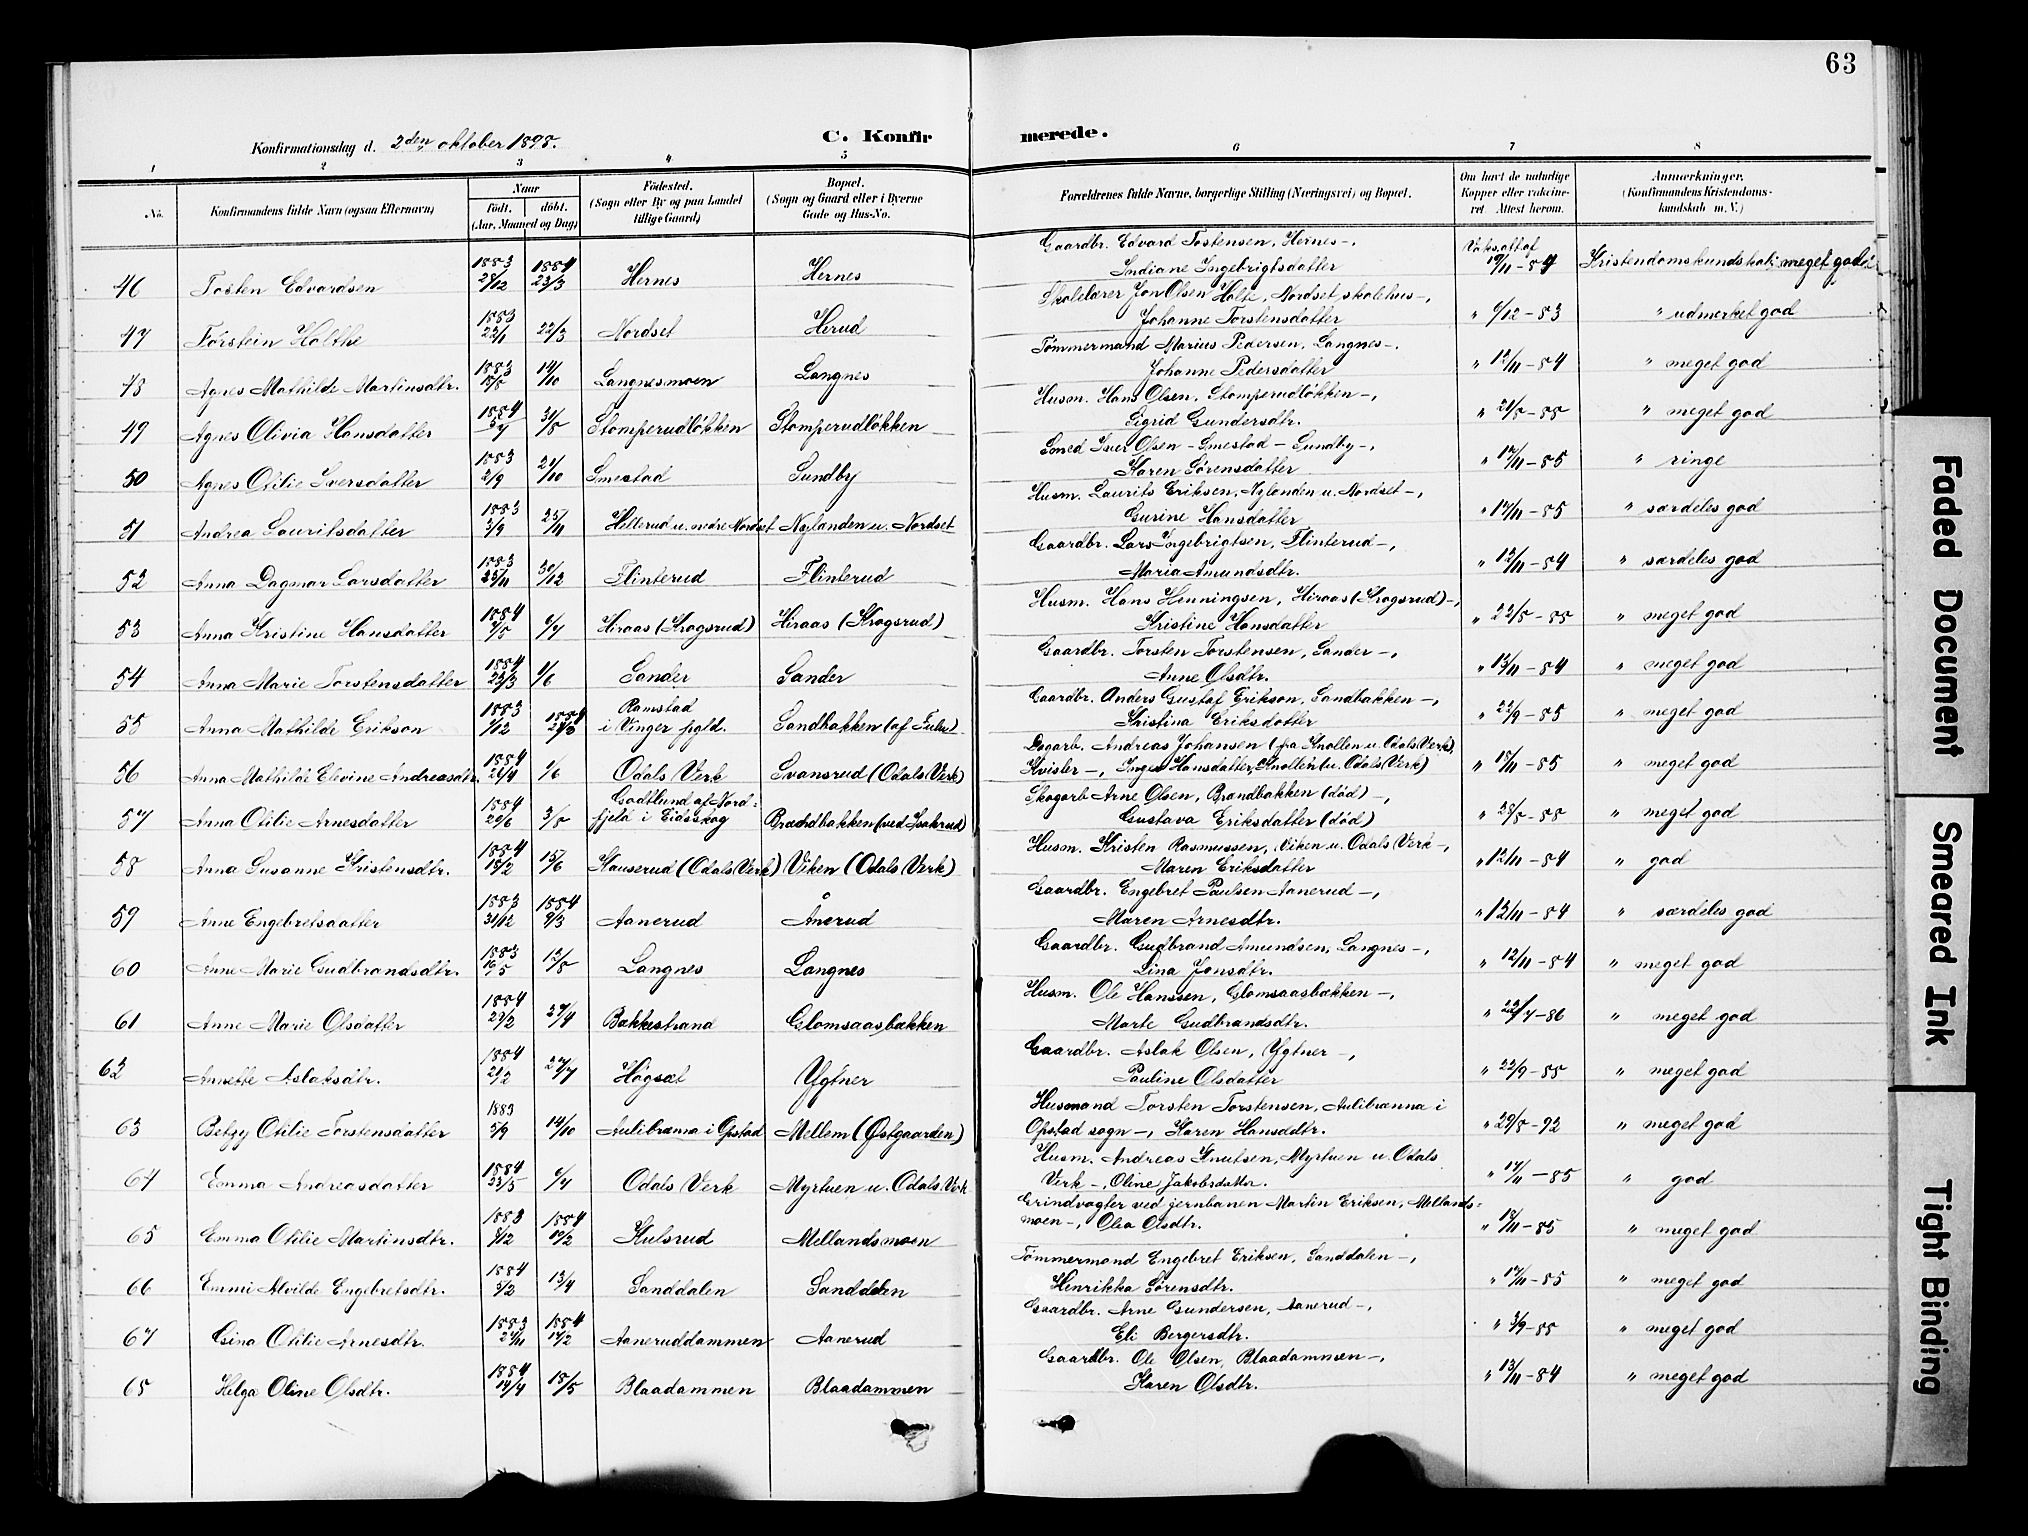 63
Konfirmationsdag d. 2den oktober 1898.
C. Konfir
merede.
1 2 3 4 5 6 7 8
No.
Konfirmandens fulde Navn (ogsaa Efternavn)
Naar
Født. døbt.
(Aar, Maaned og Dag)
Fødested.
(Sogn eller By og paa Landet
tillige Gaard)
Bopæl.
(Sogn og Gaard eller i Byerne
Gade og Hus-No.
Forældrenes fulde Navne, borgerlige Stilling (Næringsvei) og Bopæl.
Om havt de naturlige
Kopper eller vaksine-
ret. Attest herom.
Anmærkninger.
(Konfirmandens Kristendoms-
kundskab m. V.)
46 Tosten Edvardsen 1883 28/12 1884 23/3 Hernes Hernes
Gaardbr. Edvard Tostensen, Hernes -,
Indiane Ingebrigtsdatter
Vaks.att af 19/11-84 Kristendomskundskab: meget god
47 Torstein Holthe 1883 22/1 22/3 Nordset Herud
Skolelærer Jon Olsen Holte, Nordset skolehus -,
Johanne Torstensdatter
" 6/12-83 " udmerket god
48 Agnes Mathilde Martinsdtr. 1883 18/8 14/10 Langnesmoen Langnes
Tømmermand Marius Pedersen, Langnes -,
Johanne Pedersdatter
" 12/11-84 " meget god
49 Agnes Olivia Hansdatter 1884 5/7 31/8 Stomperudløkken Stomperudløkken
Husm. Hans Olsen, Stomperudløkken -,
Sigrid Gundersdtr.
" 21/8-85 " meget god
50 Agnes Otilie Iversdatter 1883 2/9 21/10 Smestad Sundby
Smed Iver Olsen - Smestad - Sundby -,
Karen Sørensdatter
" 17/11-85 " ringe
51 Andrea Lauritsdatter 1883 3/9 25/11 Hellerud u. nedre Nordset Nylanden u. Nordset
Husm. Laurits Eriksen, Nylanden u. Nordset -,
Gurine Hansdatter
" 17/11-85 " særdeles god
52 Anna Dagmar Larsdatter 1883 23/11 30/12 Flinterud Flinterud
Gaardbr. Lars Ingebrigtsen, Flinterud -,
Maria Amundsdtr.
" 12/11-84 " særdeles god
53 Anna Kristine Hansdatter 1884 9/5 6/7 Hiraas (Krogsrud) Hiraas (Krogsrud)
Husm. Hans Henningsen, Hiraas (Krogsrud) -,
Kristine Hansdatter
" 22/8-85 " meget god
54 Anna Marie Torstensdatter 1884 23/3 1/6 Sander Sander
Gaardbr. Torsten Torstensen, Sander -,
Anne Olsdtr.
" 13/11-84 " meget god
55 Anna Mathilde Erikson 1883 1/12 1884 Ramstad
i Vinger pgld. Sandbakken (af Fulu)
Gaardbr. Anders Gustaf Erikson, Sandbakken -,
Kristina Eriksdatter
" 22/9-85 " meget god
56 Anna Mathilde Elevine Andreasdtr. 1884 26/4 1/6 Odals Verk Svansrud (Odals Verk)
Dagarb. Andreas Johansen (fra Knollen u. Odals Verk),
Kvisler -, Inger Hansdatter, Knollen (u. Odals Verk)
" 18/11-85 " meget god
57 Anna Otilie Arnesdatter 1884 20/6 3/8 Godtlund af Nord-
fjeld i Eidsskog Brændbakken (ved Isakrud)
Skogarb Arne Olsen, Brandbakken (død) -,
Gustava Eriksdatter (død)
" 28/8-85 " meget god
58 Anna Susanne Kristensdtr. 1884 18/2 15/6 Stauserud (Odals Verk) Viken (Odals Verk)
Husm. Kristen Rasmussen, Viken u. Odals Verk -,
Maren Eriksdatter
" 12/11-84 " god
59 Anne Engebretsdatter 1883 31/12 1884 9/3 Aanerud Ånerud
Gaardbr. Engebret Paulsen Aanerud -,
Maren Arnesdtr.
" 12/11-84 " særdeles god
60 Anne Marie Gudbrandsdtr. 1883 16/5 12/8 Langnes Langnes
Gaardbr. Gudbrand Amundsen, Langnes -,
Lina Jonsdtr.
" 12/11-84 " meget god
61 Anne Marie Olsdatter 1884 29/2 27/4 Bakkestrand Glomsaasbakken
Husm. Ole Hanssen, Glomsaasbakken -,
Marte Gudbrandsdtr.
" 22/7-86 " meget god
62 Annette Aslaksdtr. 1884 21/2 27/7 Høgsæt Ygtner
Gaardbr. Aslak Olsen, Ygtner -,
Pauline Olsdatter
" 22/9-85 " meget god
63 Betzy Otilie Torstensdatter 1883 5/9 14/10 Aulibrænna i Opstad Mellem (Østgaarden)
Husmand Torsten Torstensen, Aulibrænna i
Opstad sogn -, Karen Hansddtr.
" 29/8-92 " meget god
64 Emma Andreasdatter 1884 23/5 6/7 Odals Verk Myrtuen u. Odals Verk
Husm. Andreas Knutsen, Myrtuen u. Odals
Verk -, Oline Jakobsdatter.
" 17/11-85 " god
65 Emma Otilie Martinsdtr. 1883 8/12 1884 10/2 Kulsrud Mellandsmoen
Grindvogter ved jernbanen Martin Eriksen, Mellands-
moen -, Olea Olsdtr.
" 18/11-85 " meget god
66 Emmi Alvilde Engebretsdtr. 1884 5/2 13/4 Sanddalen Sanddalen
Tømmermand Engebret Eriksen, Sanddalen -,
Henrikka Sørensdtr.
" 17/11-85 " meget god
67 Gina Otilie Arnesdtr. 1883 27/11 1884 17/2 Aaneruddammen Aanerud
Gaardbr. Arne Gundersen, Aanerud -,
Eli Bergersdtr.
" 3/9-85 " meget god
68 Helga Oline Olsdtr. 1884 14/4 18/5 Blaadammen Blaadammen
Gaardbr. Ole Olsen, Blaadammen -,
Karen Olsdtr.
" 13/11-84 " meget god
Faded Document
Smeared Ink
Tight Binding